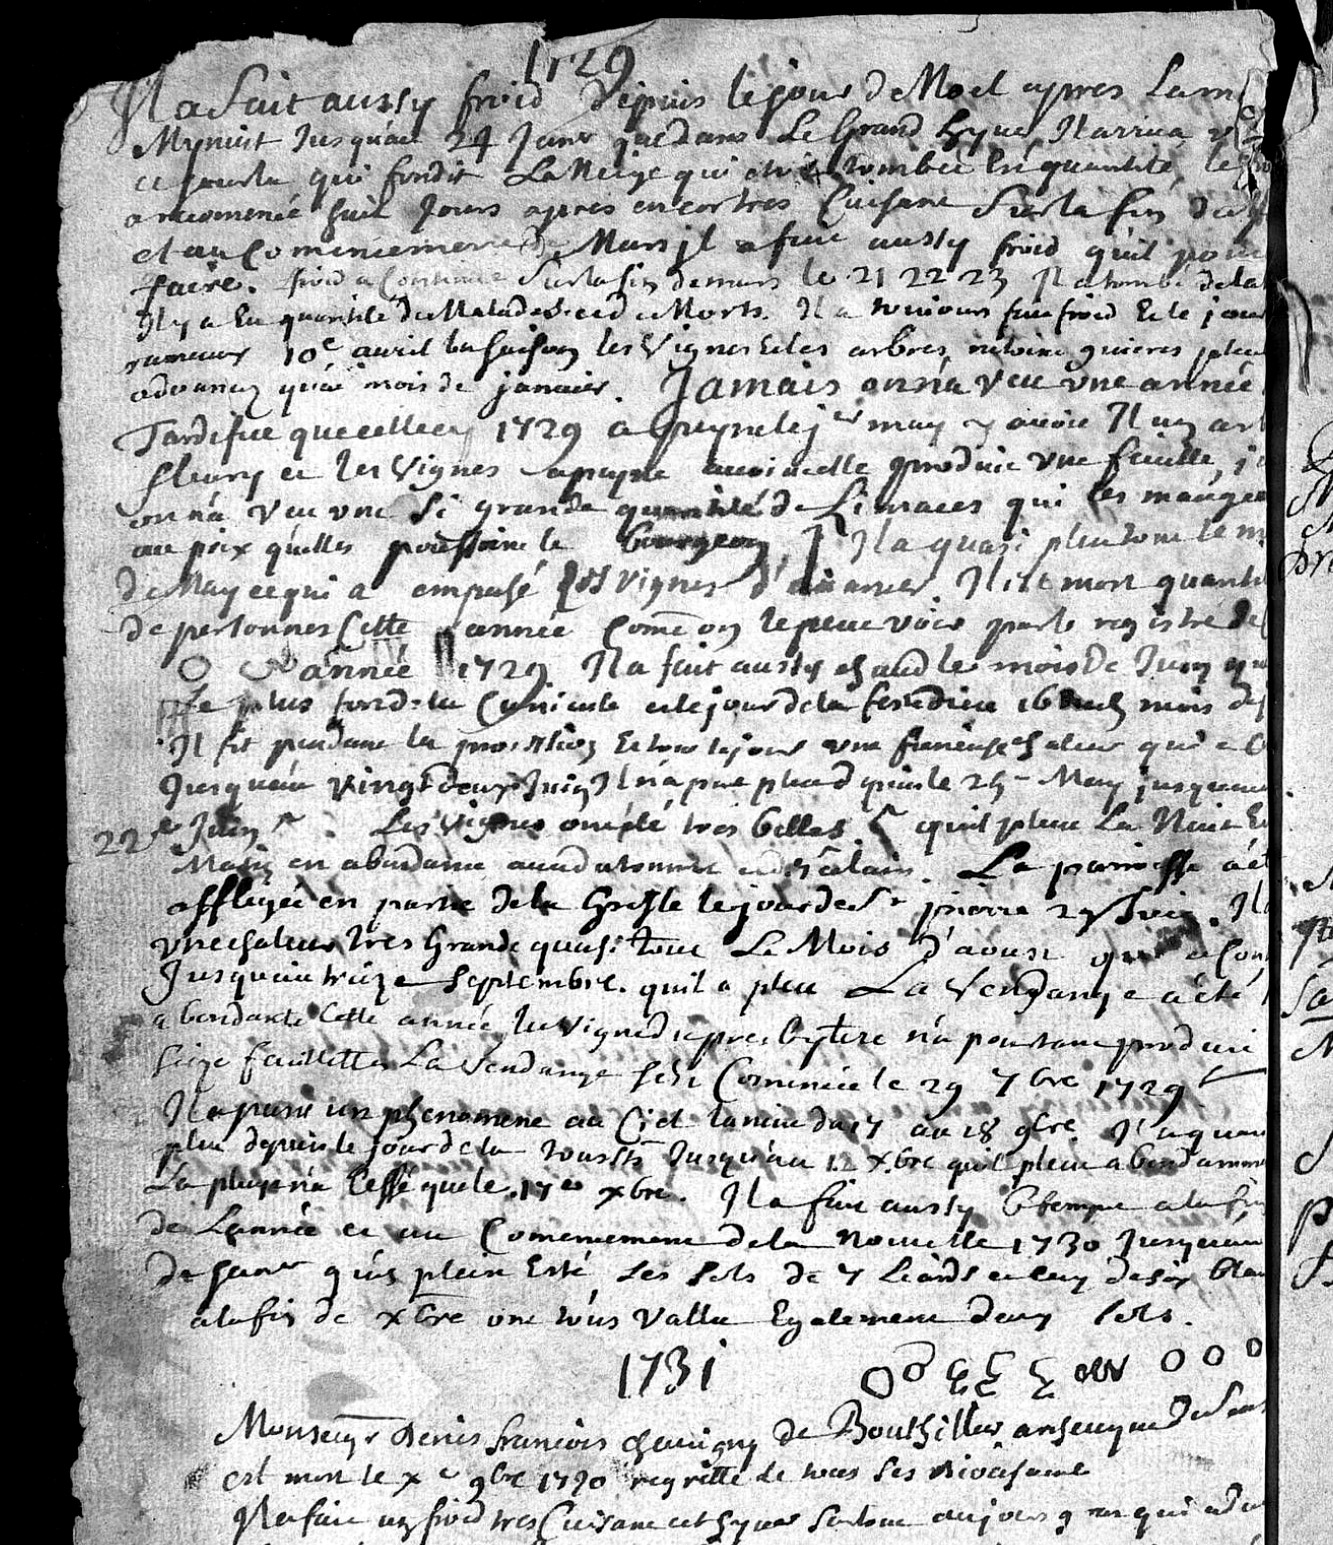 1729
Il a fait aussy froid depuis le jour de Noel apres la m
Mynuit jusqu'au 24 Janr que dans le Grand hyver Il arriva
ce jourla qui fondit la Neige qui etoit tombée en quantité, le
a recomencé huit jours apres encor tres Cuisant Sur la fin de
et au Commencement de Mars il a fait aussy froid qu'il pou
faire. froid a Continué Sur la fin de mars le 21 22 23 Il a tombé de la
Il y a Eu quantité de Malades et de Morts. Il a toujours fait froid Et le jour
rameaux 10e avril la saison les Vignes Et les arbres netoient guieres plus
advancez qu'au mois de janvier. Jamais on n'a veu une année
Tardifve que celle cy 1729 a peyne le jer may y avoit Il un
fleury et les Vignes a peyne avoient elle produit une feuille,
on n'a veu une Si grande quantité de Limaces qui les mangea
au prix qu'elles poussoient le bourgeon. Il a quasi pleu tout le m
de May ce qui a empesé les vignes d'avancer. Il est mort quantit
de personnes Cette année Comme on le peut voir par le registre de
année 1729 Il a fait aussy chaud le mois de Juin qu
le plus fond de la Canicule et le jour de la feste dieu 16 dud mois de
Il fit pendant la procession Et tout le jour une furieuse chaleur qui a
Jusquau vingt deux Juin Il n'a pas pleu depuis le 25 May jusquau
22e Juin. Les Vignes ont été tres belles. qu'il pleut La Nuit Et
Matin en abondance avec du tonnerre et des éclairs. La parroisse a ét
affligée en partie de la Gresle le jour de St pierre 29 Juin. Il
une chaleur tres Grande quasi tout Le Mois d'aoust qui a Con
Jusquau treize Septembre. qu'il a pleu La Vendange a été
abondante Cette année, les Vignes du presbytere n'a pourtant produit
seize feuillettes La Vendange s'est Comencée le 29 7bre 1729
Il a paru un phenomene au Ciel la nuit du 17 au 18 9bre. Il a
pleu depuis le jour de la toussts Jusqu'au 12 Xbre qu'il pleut abondamme
La pluye n'a Cessé que le 17e xbre. Il a fait aussy temps a la fin
de L'année et au Commencement de la Nouvelle 1730 Jusquau
de Janr qu'en plein Esté Les Sols de 7 Liards et ceux de six blan
a la fin de xbre ont tous Vallu Egalement deux Sols.
1731
Monseigr Denis francois chavigny de Bouthillier archevque de Sens
est mort le Xe 9bre 1730 regretté de tous Ses diocesains
Il a fait un froid tres Cuisant cet hyver Surtout